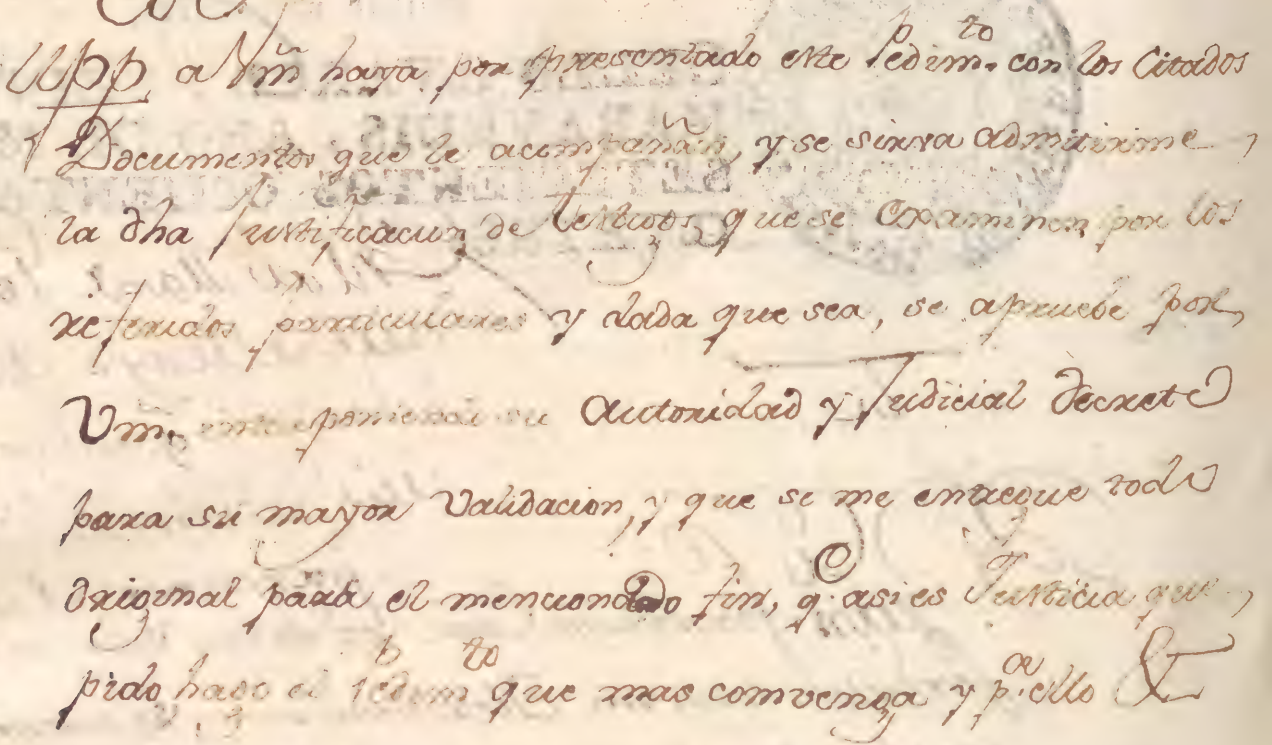 Supp.co a Vm haya por presentado este Pedim.to con los Citados
Documentos que le acompañan, y se sirva admitirme
la dha Justificacion de testigos que se Examinen por los
referidos particulares y dada que sea, se apruebe por
Vm. interponiendo su Autoridad y Judicial Decreto
para su mayor Validacion, y que se me entregue todo
Original para el mencionado fin, q.e asi es Justicia que
pido hago el Pedim.to que mas comvenga y p.a ello &